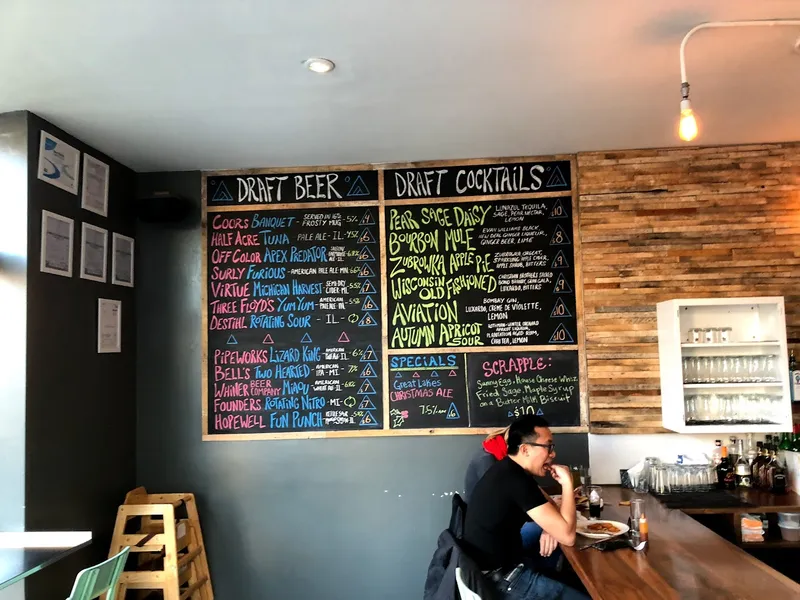 DRAFT BEER
COORS BANQUET - SERVED IN 16 oz FROSTY MUG - 5% 4
HALF ACRE TUNA PALE ALE - IL - 4.5% 6
OFF COLOR APEX PREDATOR 6
SURLY FURIOUS - AMERICAN PALE ALE MN 6.6% 6
VIRTUE MICHIGAN HARVEST - SEMI DRY CIDER - MI
THREE FLOYD'S YUM YUM - AMERICAN PALE ALE 6
DESTIHL ROTATING SOUR - IL - 6
PIPEWORKS LIZARD KING - AMERICAN PALE ALE - IL - 6% 7
BELL'S TWO HEARTED - AMERICAN IPA - MI 7% 6
WHINER BEER COMPANY MIAOU - AMERICAN WHEAT ALE - IL
FOUNDERS ROTATING NITRO - MI - 7
HOPEWELL FUN PUNCH 6
DRAFT COCKTAILS
PEAR SAGE DAISY LUNAZUL TEQUILA, SAGE, PEAR NECTAR, LEMON 10
BOURBON MULE EVAN WILLIAMS BLACK, NEW DEAL GINGER LIQUEUR, GINGER BEER, LIME 8
ZUBROWKA APPLE PIE 9
WISCONSIN OLD FASHIONED CHRISTIAN BROTHERS 9
AVIATION BOMBAY GIN, LUXARDO, CREME DE VIOLETTE, LEMON 10
AUTUMN APRICOT SOUR 10
SPECIALS
Great Lakes
CHRISTMAS ALE
7.5% 6
SCRAPPLE:
Sunny Egg, House Cheese Whiz
Fried Sage, Maple Syrup
on a Butter Milk Biscuit
$10